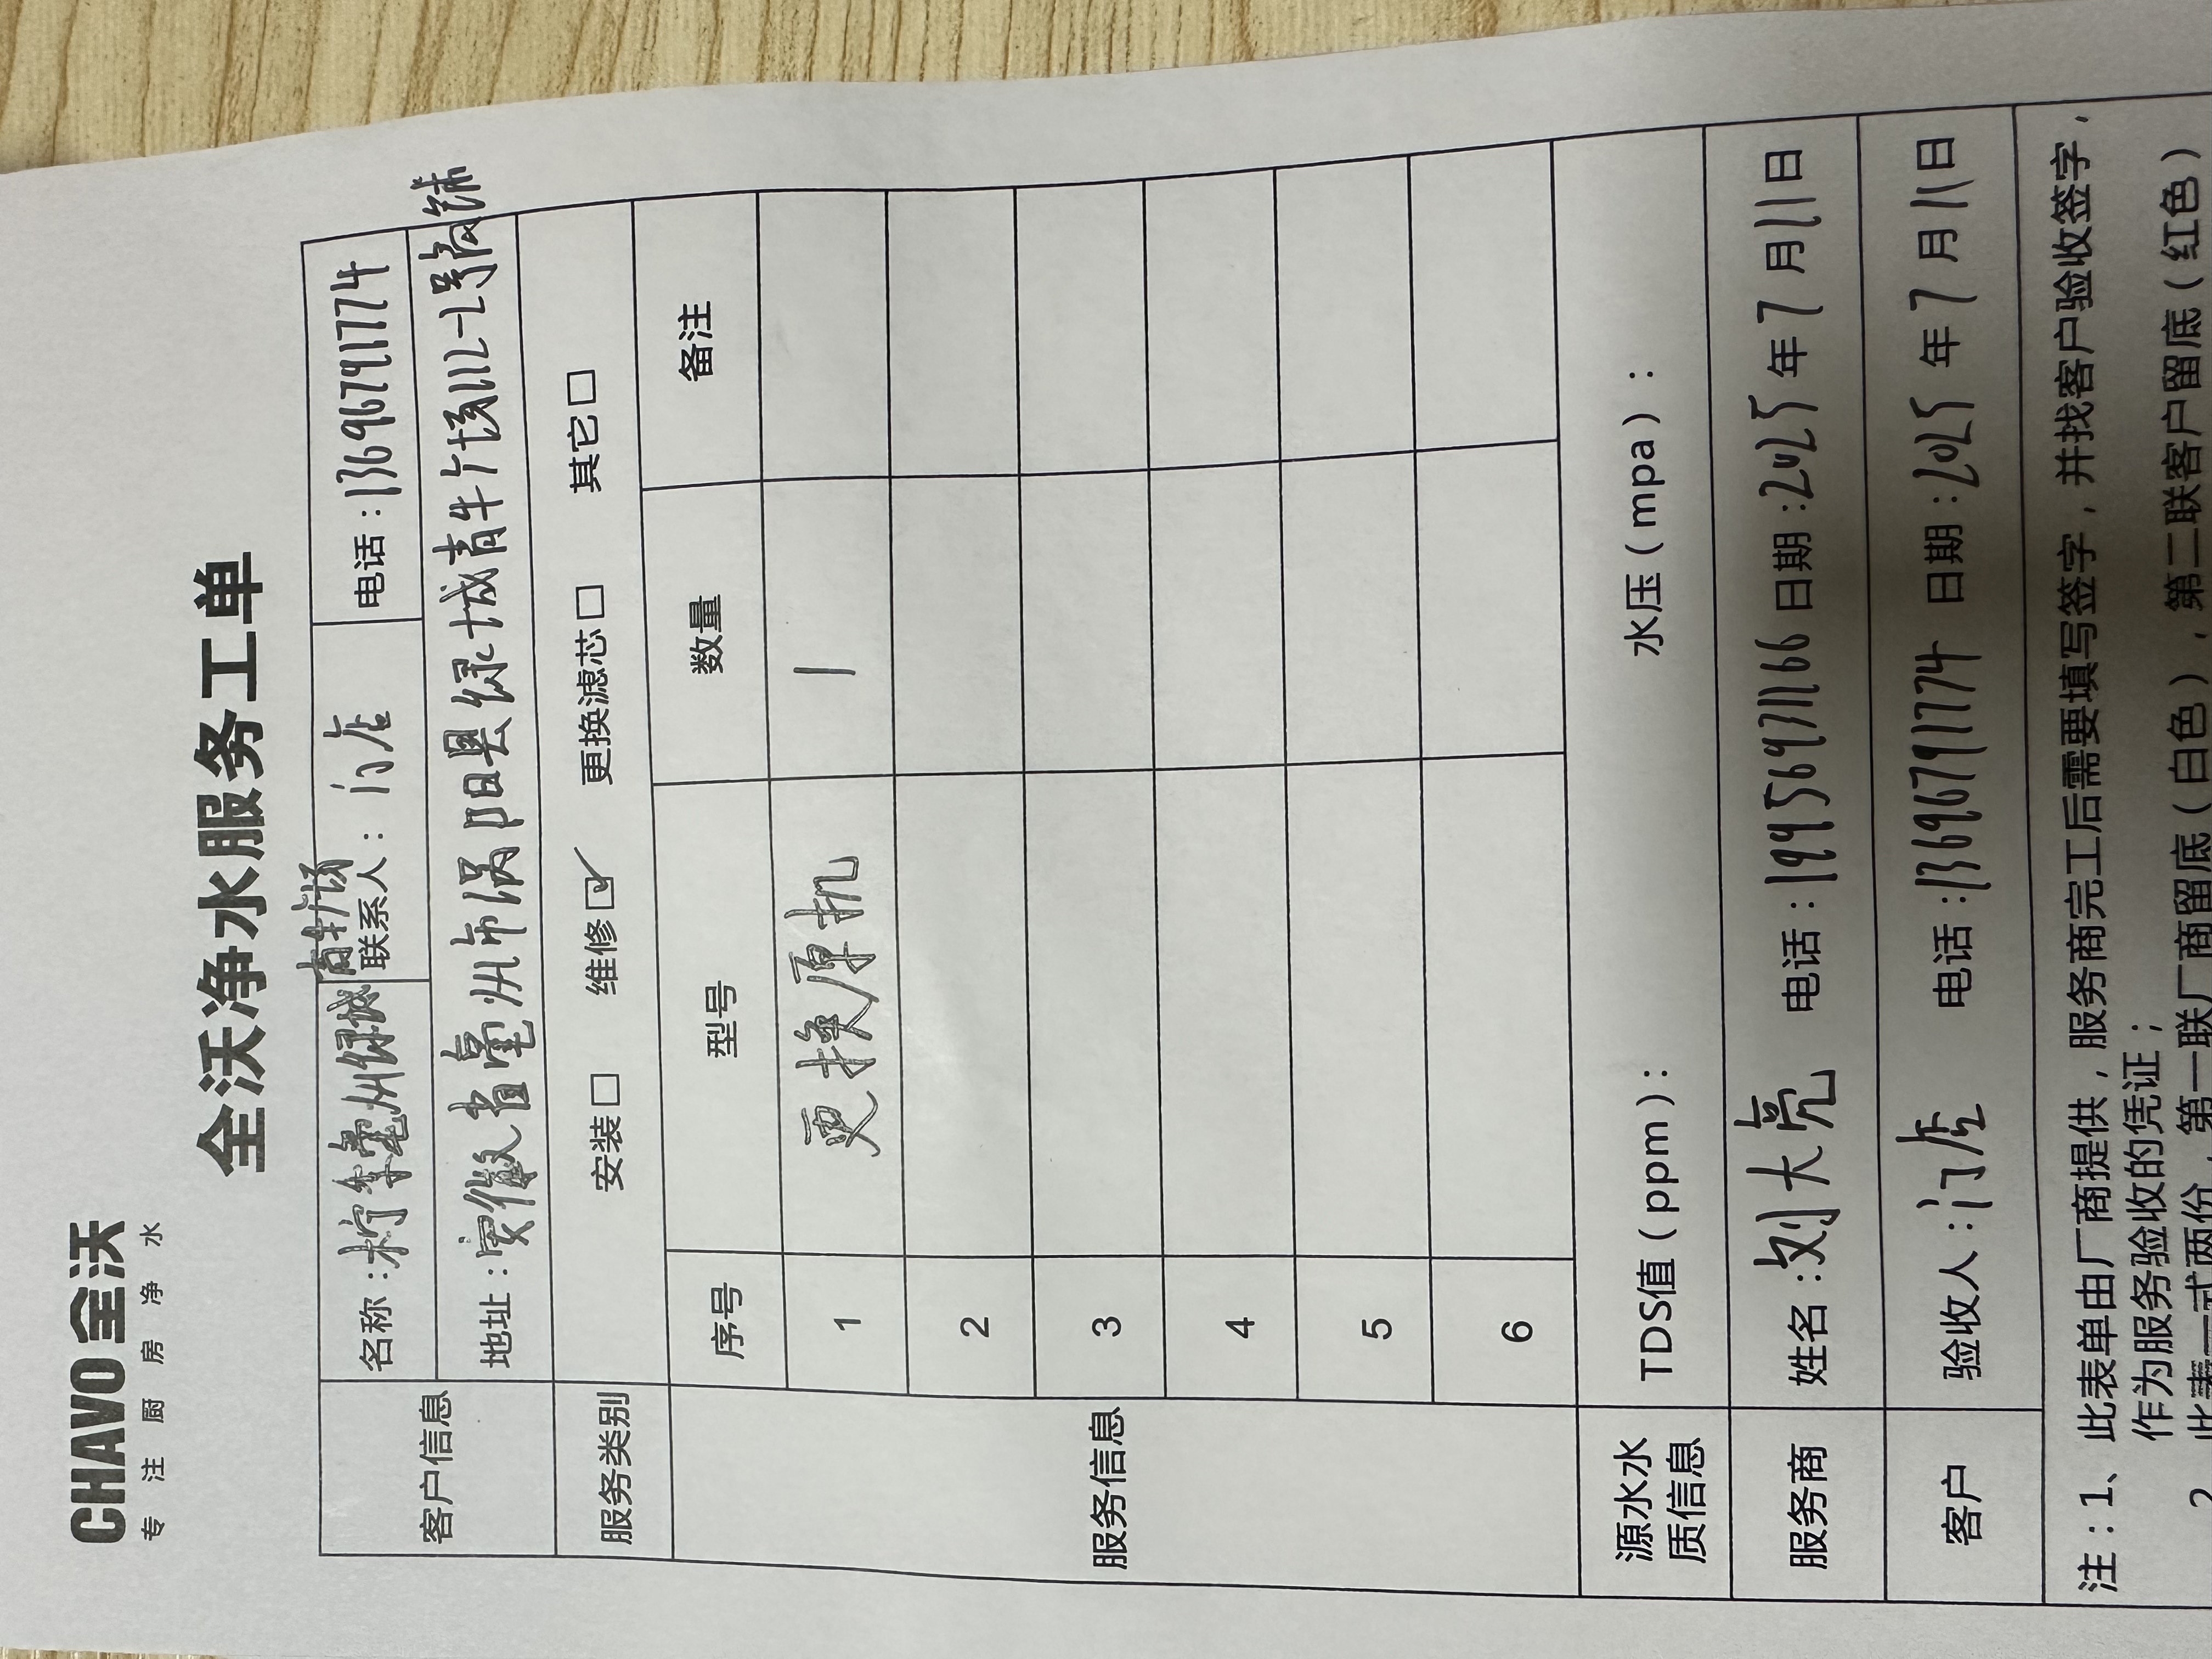 CHAVO全沃
专注厨房净水
全沃净水服务工单
客户信息 名称：柠季亳州绿城商业广场 联系人：门店 电话：13696791774
地址：安徽省亳州市涡阳县绿城青牛广场112-2号商铺
服务类别 安装□ 维修☑ 更换滤芯□ 其它□
服务信息 序号 型号 数量 备注
1 更换原机 1
2
3
4
5
6
源水水质信息 TDS值（ppm）： 水压（mpa）：
服务商 姓名：刘大亮 电话：19956973166 日期：2025年7月11日
客户 验收人：门店 电话：13696791774 日期：2025年7月11日
注：1、此表单由厂商提供，服务商完工后需要填写签字，并找客户验收签字，
作为服务验收的凭证；
2、此表一式两份，第一联厂商留底（白色），第二联客户留底（红色）